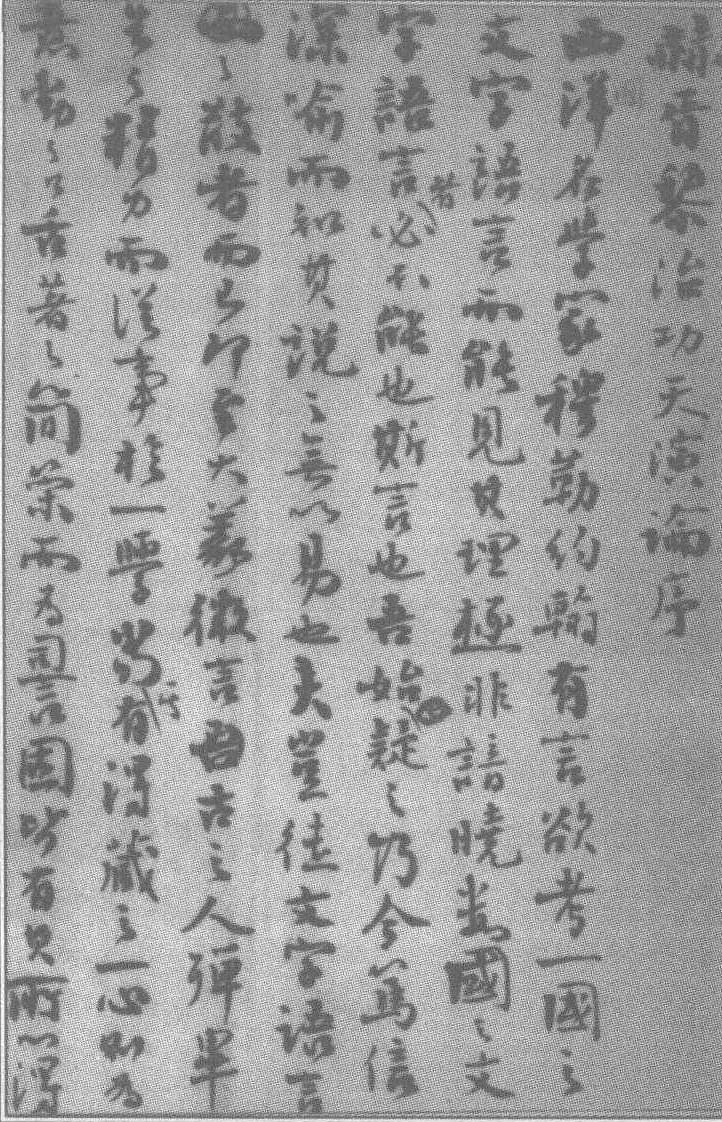 赫胥黎治功天演論序
西洋名學家穆勒約翰有言欲考一國之
文字語言而能見其理極非諳曉數國之文
字語言者必不能也斯言也吾始疑之乃今篤信
深喻而知其說之無以易也夫豈徒文字語言
之散者而已即至大義微言吾古之人殫畢
生之精力而從事於一學當有得藏之一心則為
意動之口舌著之簡策而為詞固皆有其所以得